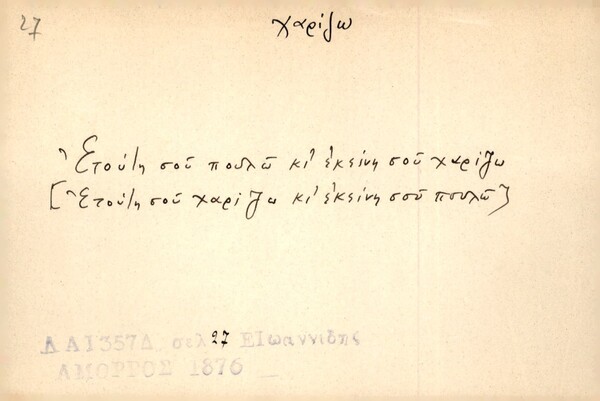 27
χαρίζω
Ἐτούτη σοῦ πουλῶ κι' ἐκείνη σοῦ χαρίζω
[Ἐτούτη σοῦ χαρίζω κι' ἐκείνη σοῦ πουλῶ]
ΛΑ1357Δ σελ 27 ΕΙωαννιδης
ΑΜΟΡΓΟΣ 1876